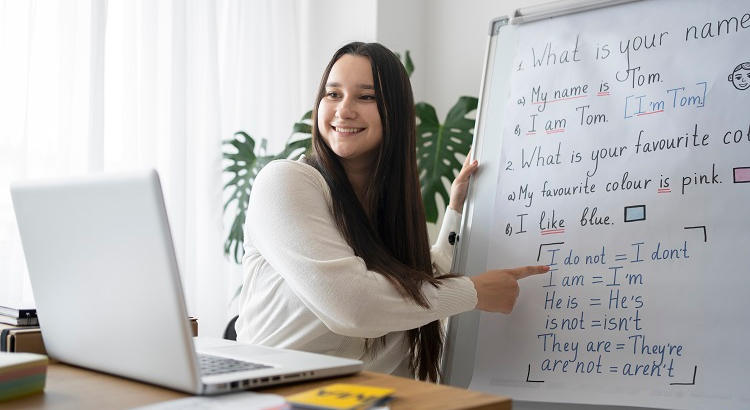 1. What is your name
a) My name is Tom.
b) I am Tom. [I'm Tom]
2. What is your favourite
a) My favourite colour is pink.
b) I like blue.
I do not = I don't
I am = I'm
He is = He's
is not = isn't
They are = They're
are not = aren't